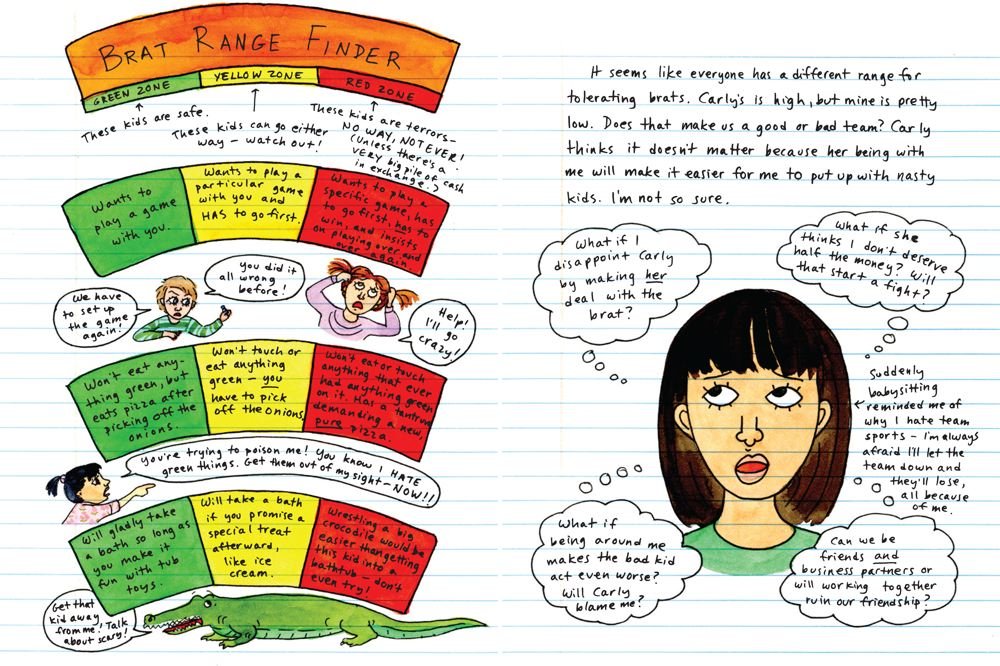 BRAT RANGE FINDER
GREEN ZONE
YELLOW ZONE
RED ZONE
These kids are safe.
These kids can go either
way – watch out!
These kids are terrors–
NO WAY, NOT EVER!
(unless there's a
VERY big pile of cash
in exchange.)
Wants to
play a game
with you.
Wants to play a
particular game
with you and
HAS to go first.
Wants to play a
specific game, has
to go first, has to
win, and insists
on playing over and
over again.
We have
to set up
the game
again!
You did it
all wrong
before!
Help!
I'll go
crazy!
Won't eat any-
thing green, but
eats pizza after
picking off the
onions.
Won't touch or
eat anything
green – you
have to pick
off the onions.
Won't eat or touch
anything that ever
had anything green
on it. Has a tantrum
demanding a new,
pure pizza.
You're trying to poison me! You know I HATE
green things. Get them out of my sight – NOW!!
Will gladly take
a bath so long as
you make it
fun with tub
toys.
Will take a bath
if you promise a
special treat
afterward,
like ice
cream.
Wrestling a big
crocodile would be
easier than getting
this kid into a
bathtub – don't
even try!
Get that
kid away
from me! Talk
about scary!
It seems like everyone has a different range for
tolerating brats. Carly's is high, but mine is pretty
low. Does that make us a good or bad team? Carly
thinks it doesn't matter because her being with
me will make it easier for me to put up with nasty
kids. I'm not so sure.
What if I
disappoint Carly
by making her
deal with the
brat?
What if she
thinks I don't deserve
half the money? Will
that start a fight?
Suddenly
babysitting
reminded me of
why I hate team
sports – I'm always
afraid I'll let the
team down and
they'll lose,
all because
of me.
What if
being around me
makes the bad kid
act even worse?
Will Carly
blame me?
Can we be
friends and
business partners or
will working together
ruin our friendship?